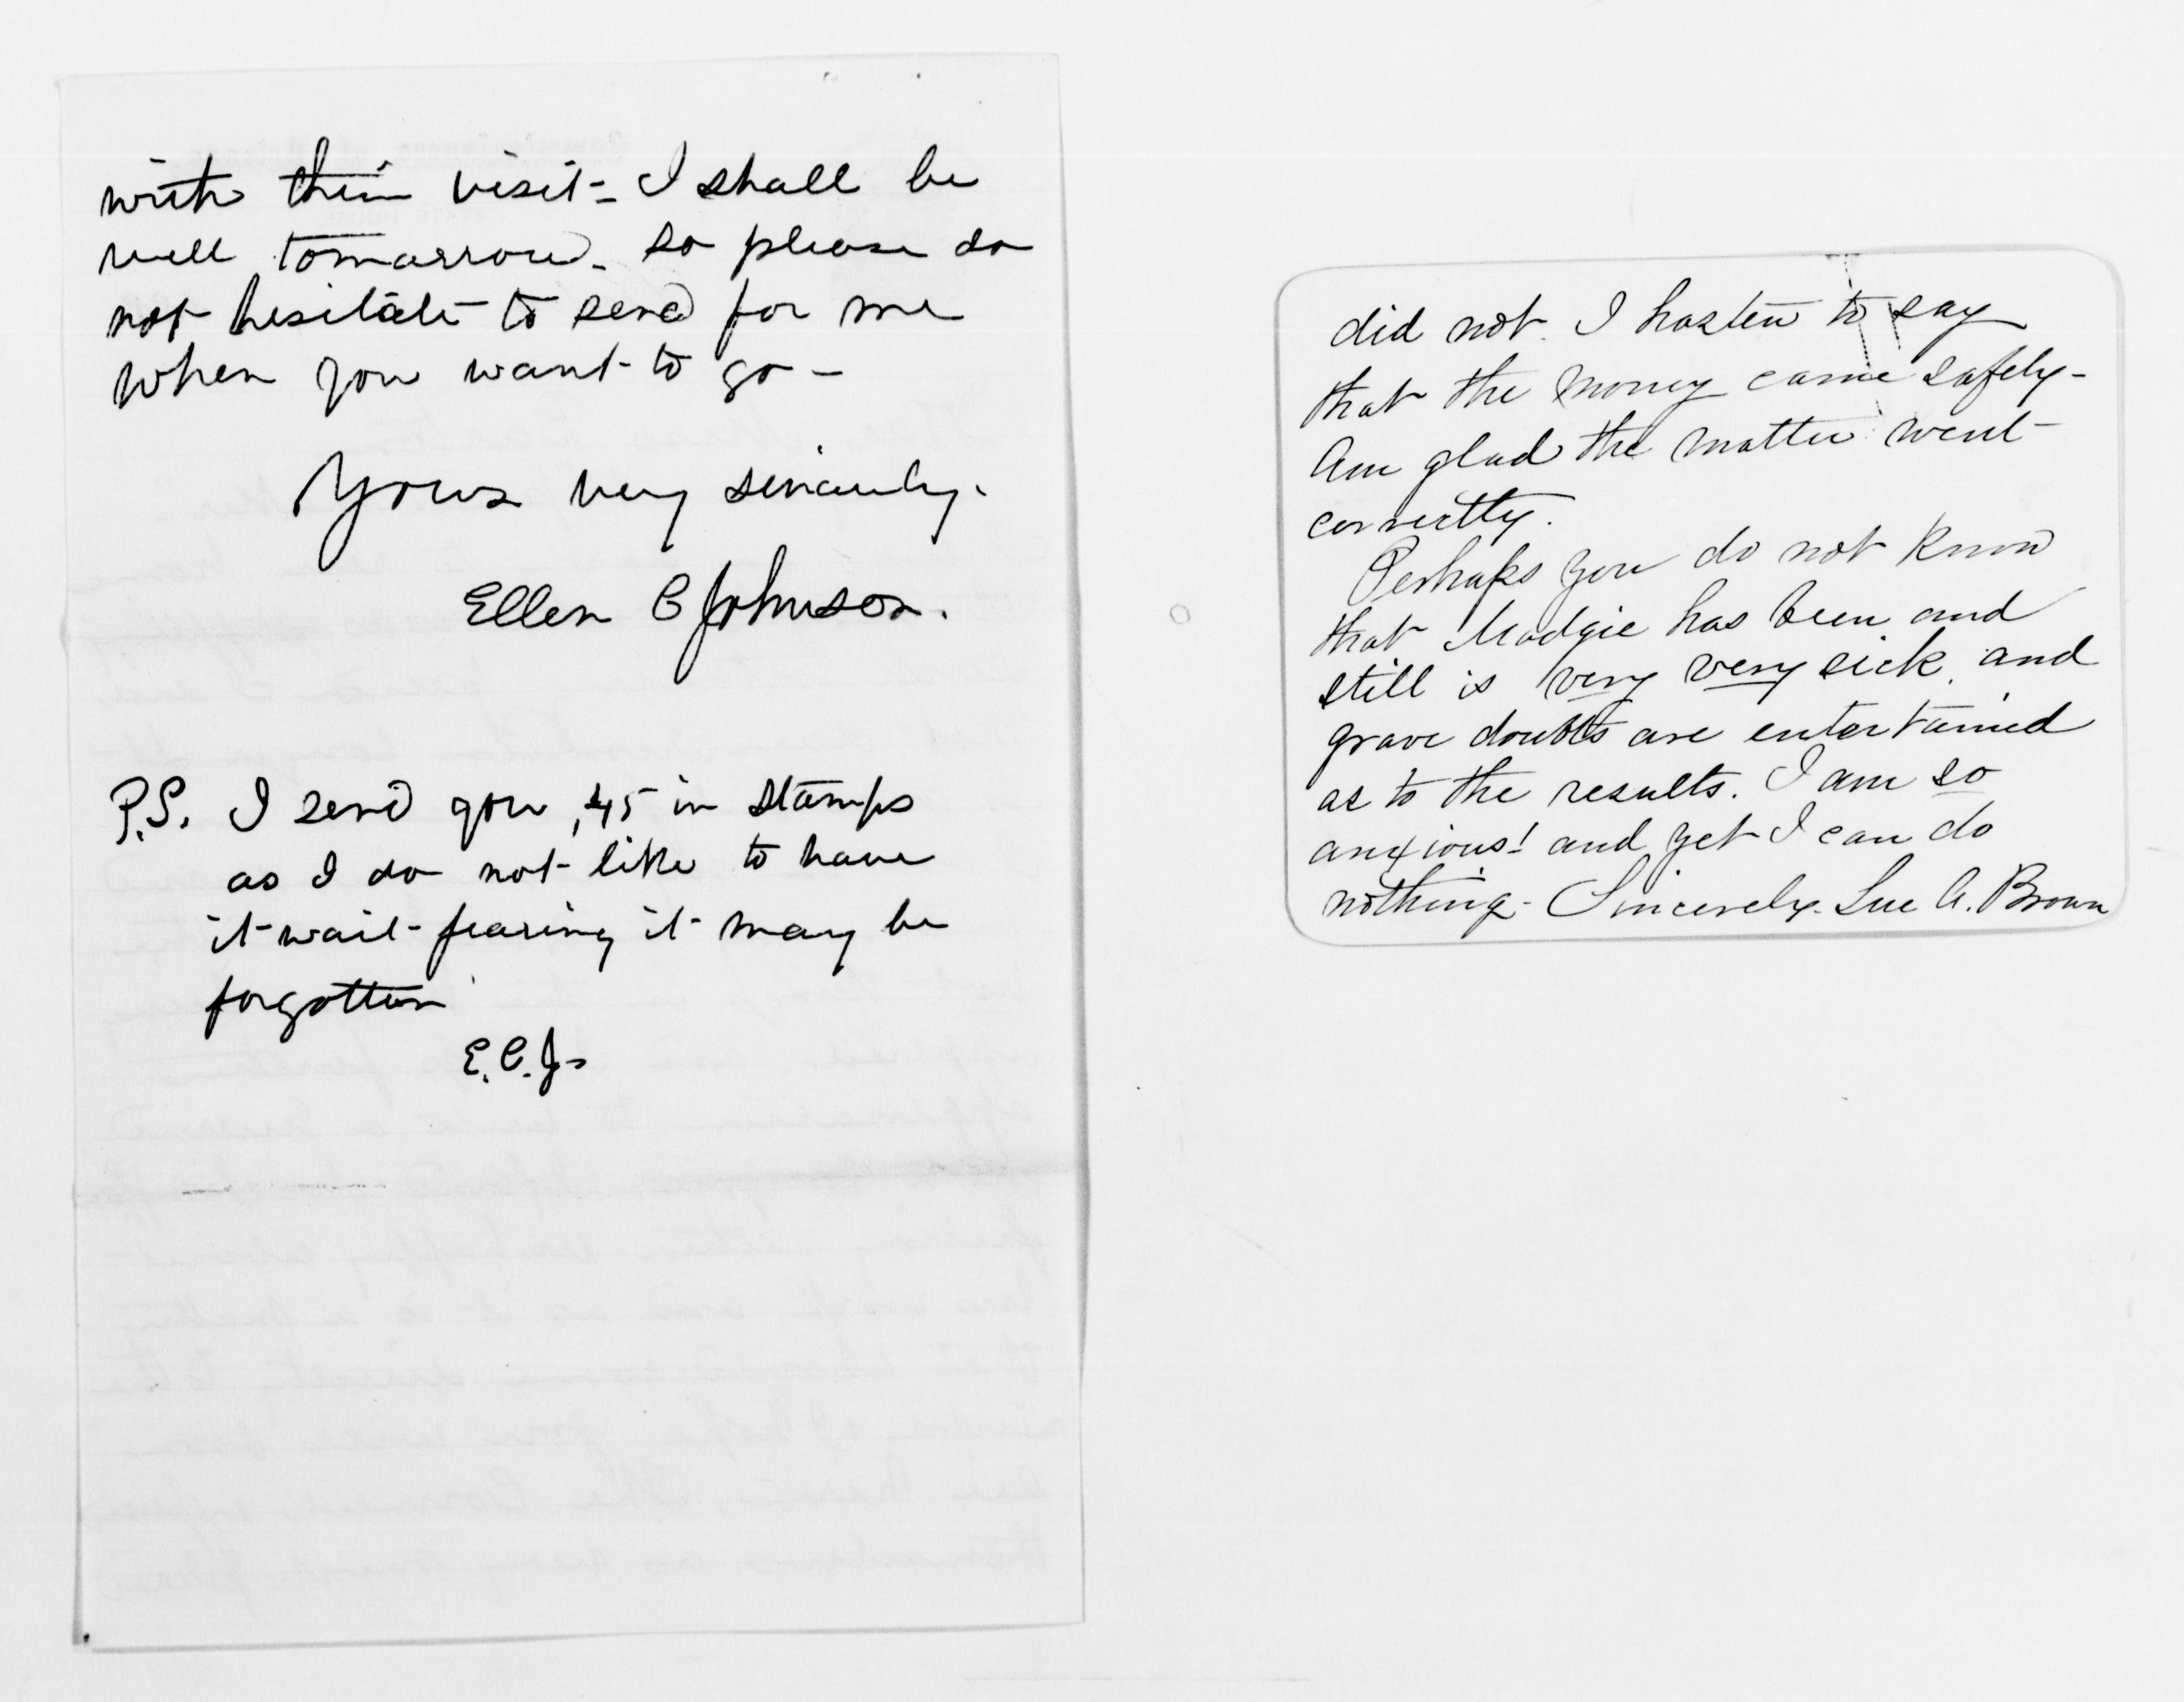 with their visit - I shall be
well tomorrow - so please do
not hesitate to send for me
when you want to go -
Yours very sincerely.
Ellen C Johnson.
P.S. I send you .45 in stamps
as I do not like to have
it wait - fearing it may be
forgotten
E.C.J-
did not. I hasten to say
that the money came safely -
Am glad the matter went
correctly.
Perhaps you do not know
that Madgie has been and
still is very very sick, and
grave doubts are entertained
as to the results. I am so
anxious! and yet I can do
nothing - Sincerely - Sue A. Brown